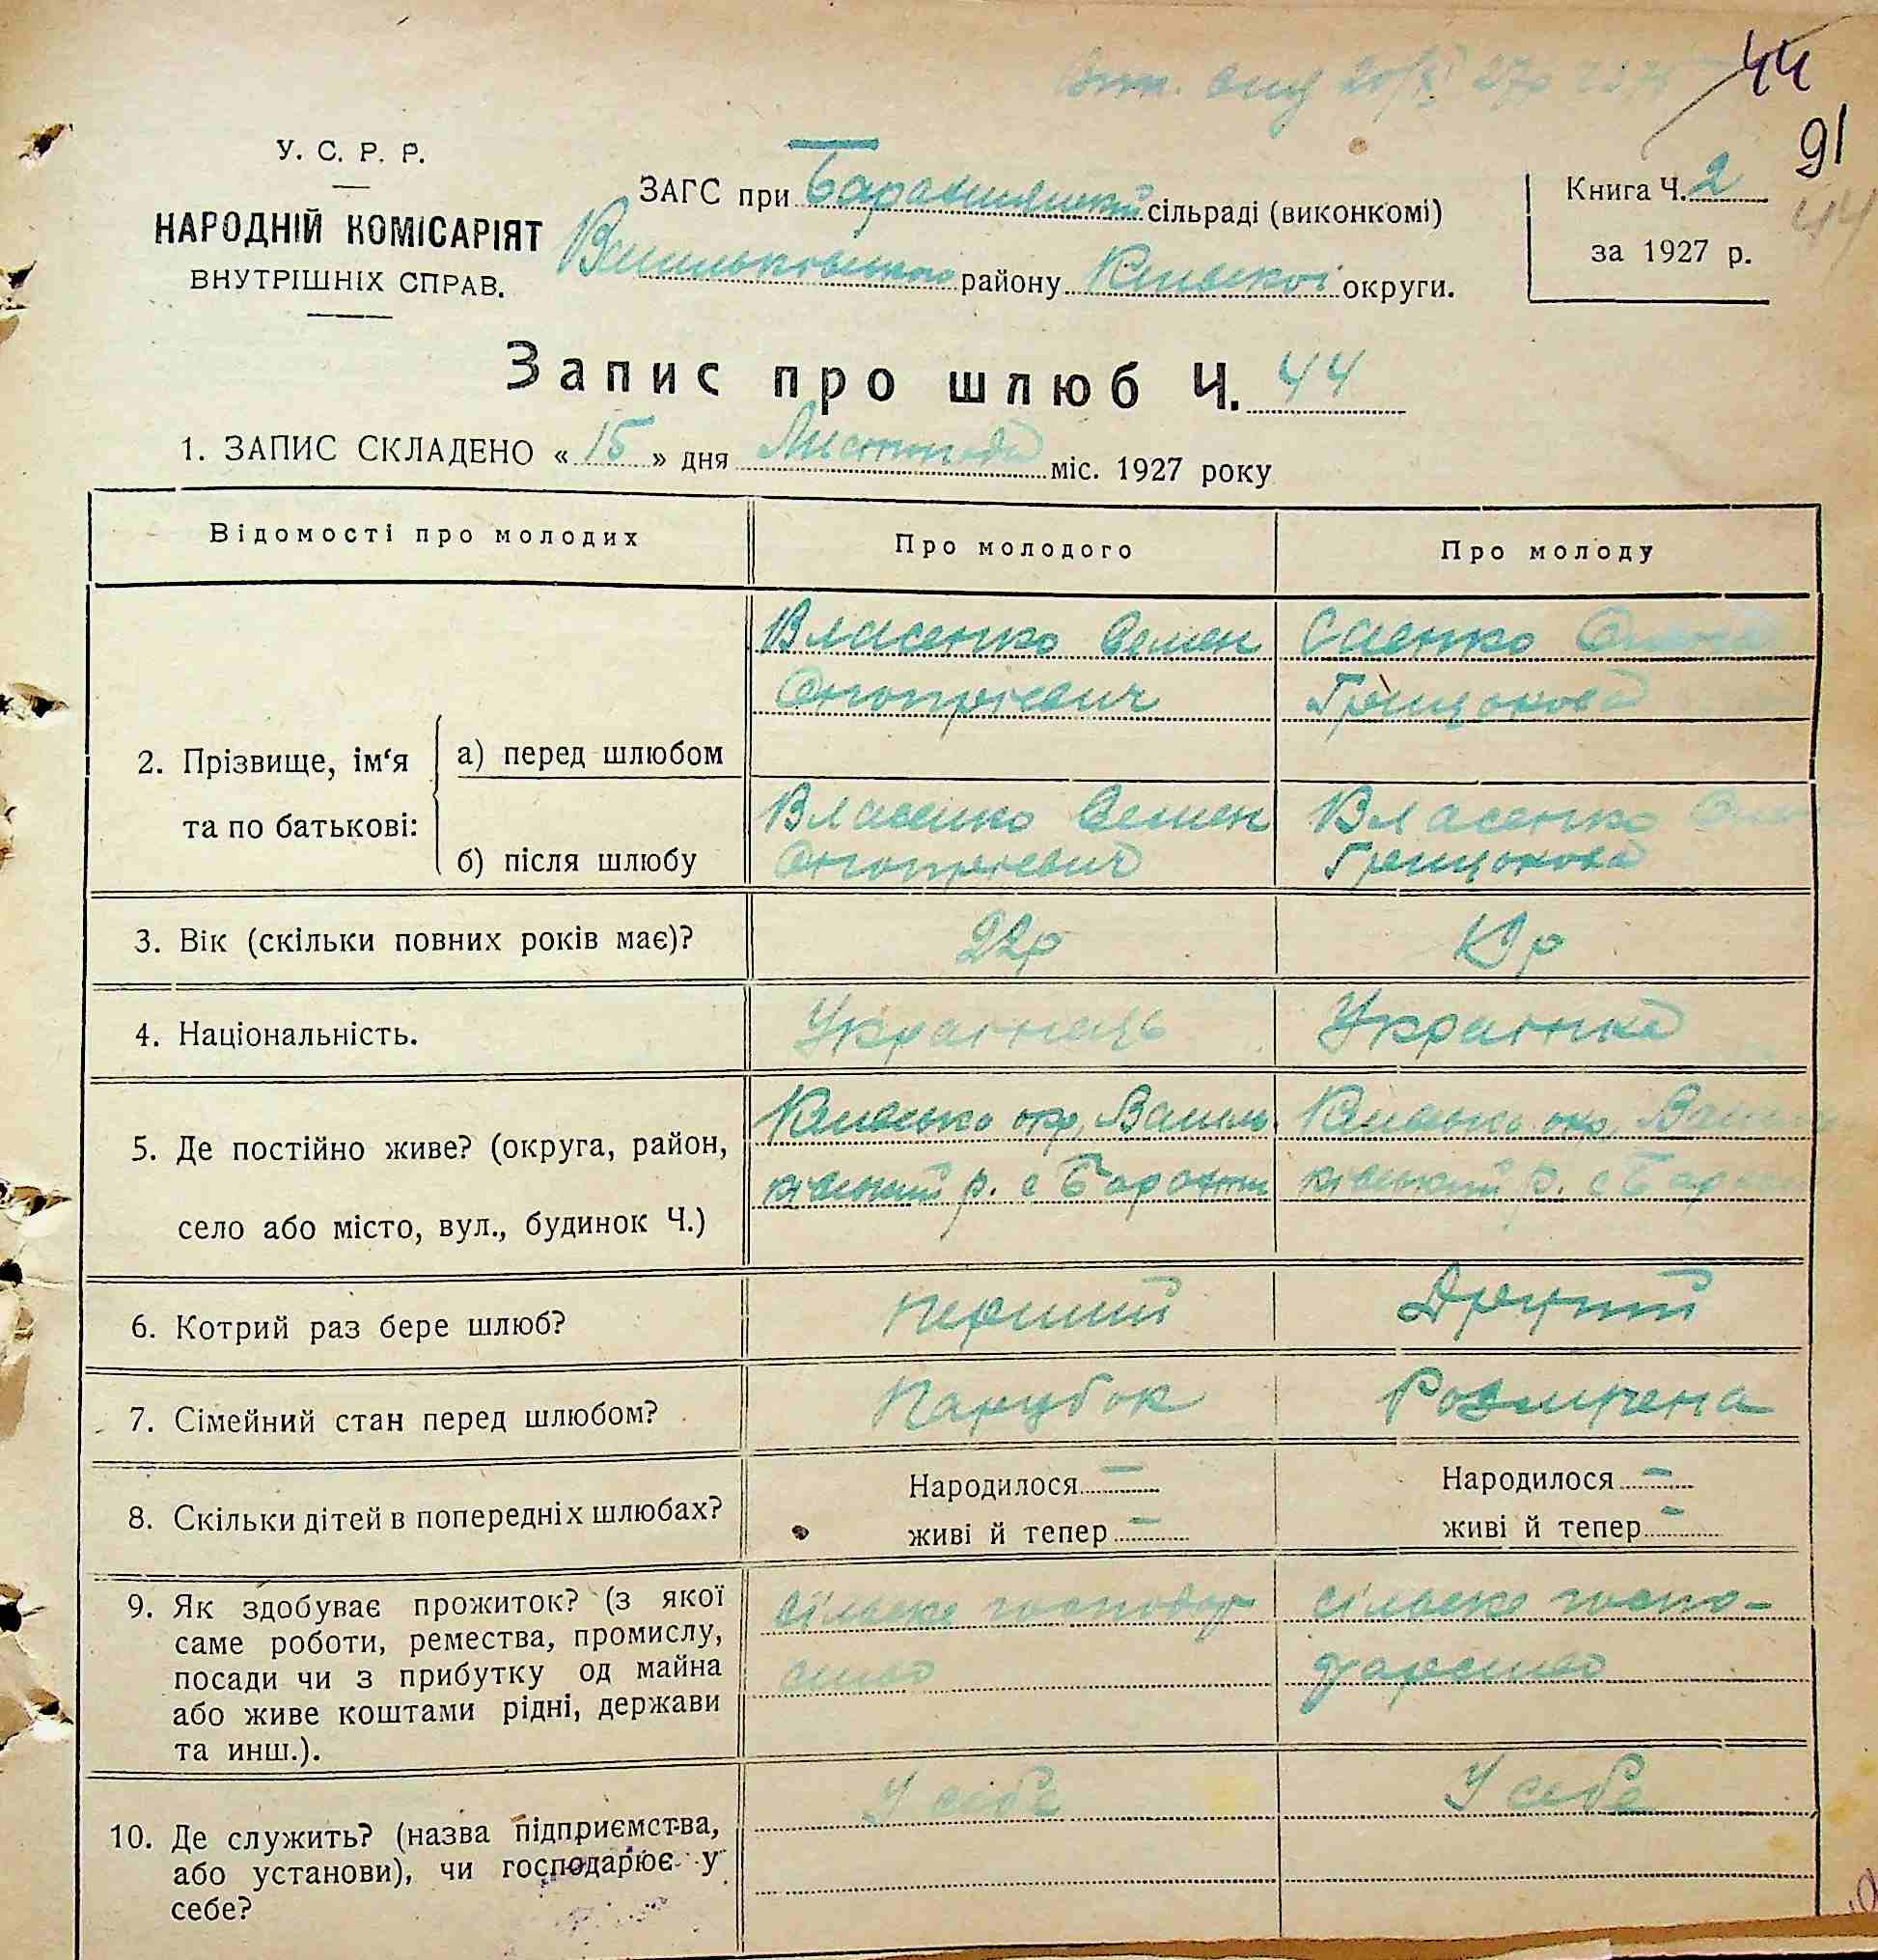 44
91
У. С. Р. Р.
НАРОДНІЙ КОМІСАРІЯТ
ВНУТРІШНІХ СПРАВ.
ЗАГС при сільраді (виконкомі)
Васильківського району Київської округи.
Книга Ч. 2
44
за 1927 р.
Запис про шлюб Ч. 44
1. ЗАПИС СКЛАДЕНО « 15 » дня Листопада міс. 1927 року
Відомості про молодих
Про молодого
Про молоду
2. Прізвище, ім‘я
та по батькові:
а) перед шлюбом
Власенко Семен
Онопрієвич
Саенко
б) після шлюбу
Власенко Семен
Онопрієвич
Власенко
3. Вік (скільки повних років має)?
22р
4. Національність.
Украінець
Украінка
5. Де постійно живе? (округа, район,
село або місто, вул., будинок Ч.)
Київсько окр, Василь
ківський р. с
Київсько окр, Василь
ківський р. с
6. Котрий раз бере шлюб?
Перший
Другий
7. Сімейний стан перед шлюбом?
Парубок
8. Скільки дітей в попередніх шлюбах?
Народилося —
живі й тепер —
Народилося —
живі й тепер —
9. Як здобуває прожиток? (з якої
саме роботи, ремества, промислу,
посади чи з прибутку од майна
або живе коштами рідні, держави
та инш.).
сільске господар
ство
сільске госпо-
дарство
10. Де служить? (назва підприємства,
або установи), чи господарює у
себе?
У себе
У себе